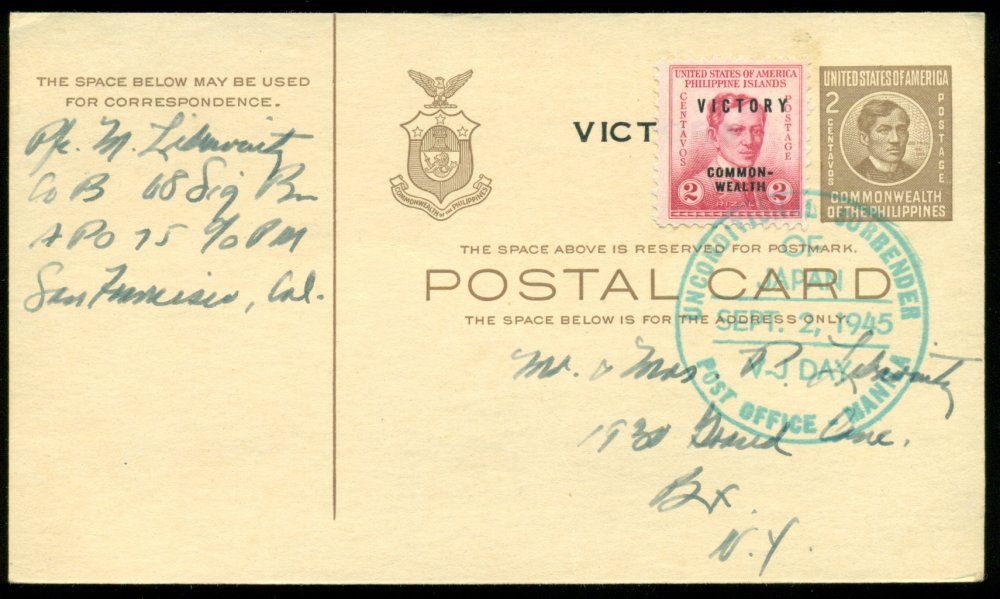 THE SPACE BELOW MAY BE USED
FOR CORRESPONDENCE.
Pfc. M.
Co B 68 Sig Bn
APO 75 c/o PM
San Francisco, Cal.
COMMONWEALTH OF THE PHILIPPINES
VICT
UNITED STATES OF AMERICA
PHILIPPINE ISLANDS
CENTAVOS
POSTAGE
VICTORY
COMMON-
WEALTH
2 2
RIZAL
UNITED STATES OF AMERICA
2
CENTAVOS
POSTAGE
COMMONWEALTH
OF THE PHILIPPINES
THE SPACE ABOVE IS RESERVED FOR POSTMARK.
POSTAL CARD
THE SPACE BELOW IS FOR THE ADDRESS ONLY.
UNCONDITIONAL SURRENDER
OF
JAPAN
SEPT. 2, 1945
V-J DAY
POST OFFICE MANILA
Mr. & Mrs. P.
Grand Conc.
Bx.
N.Y.